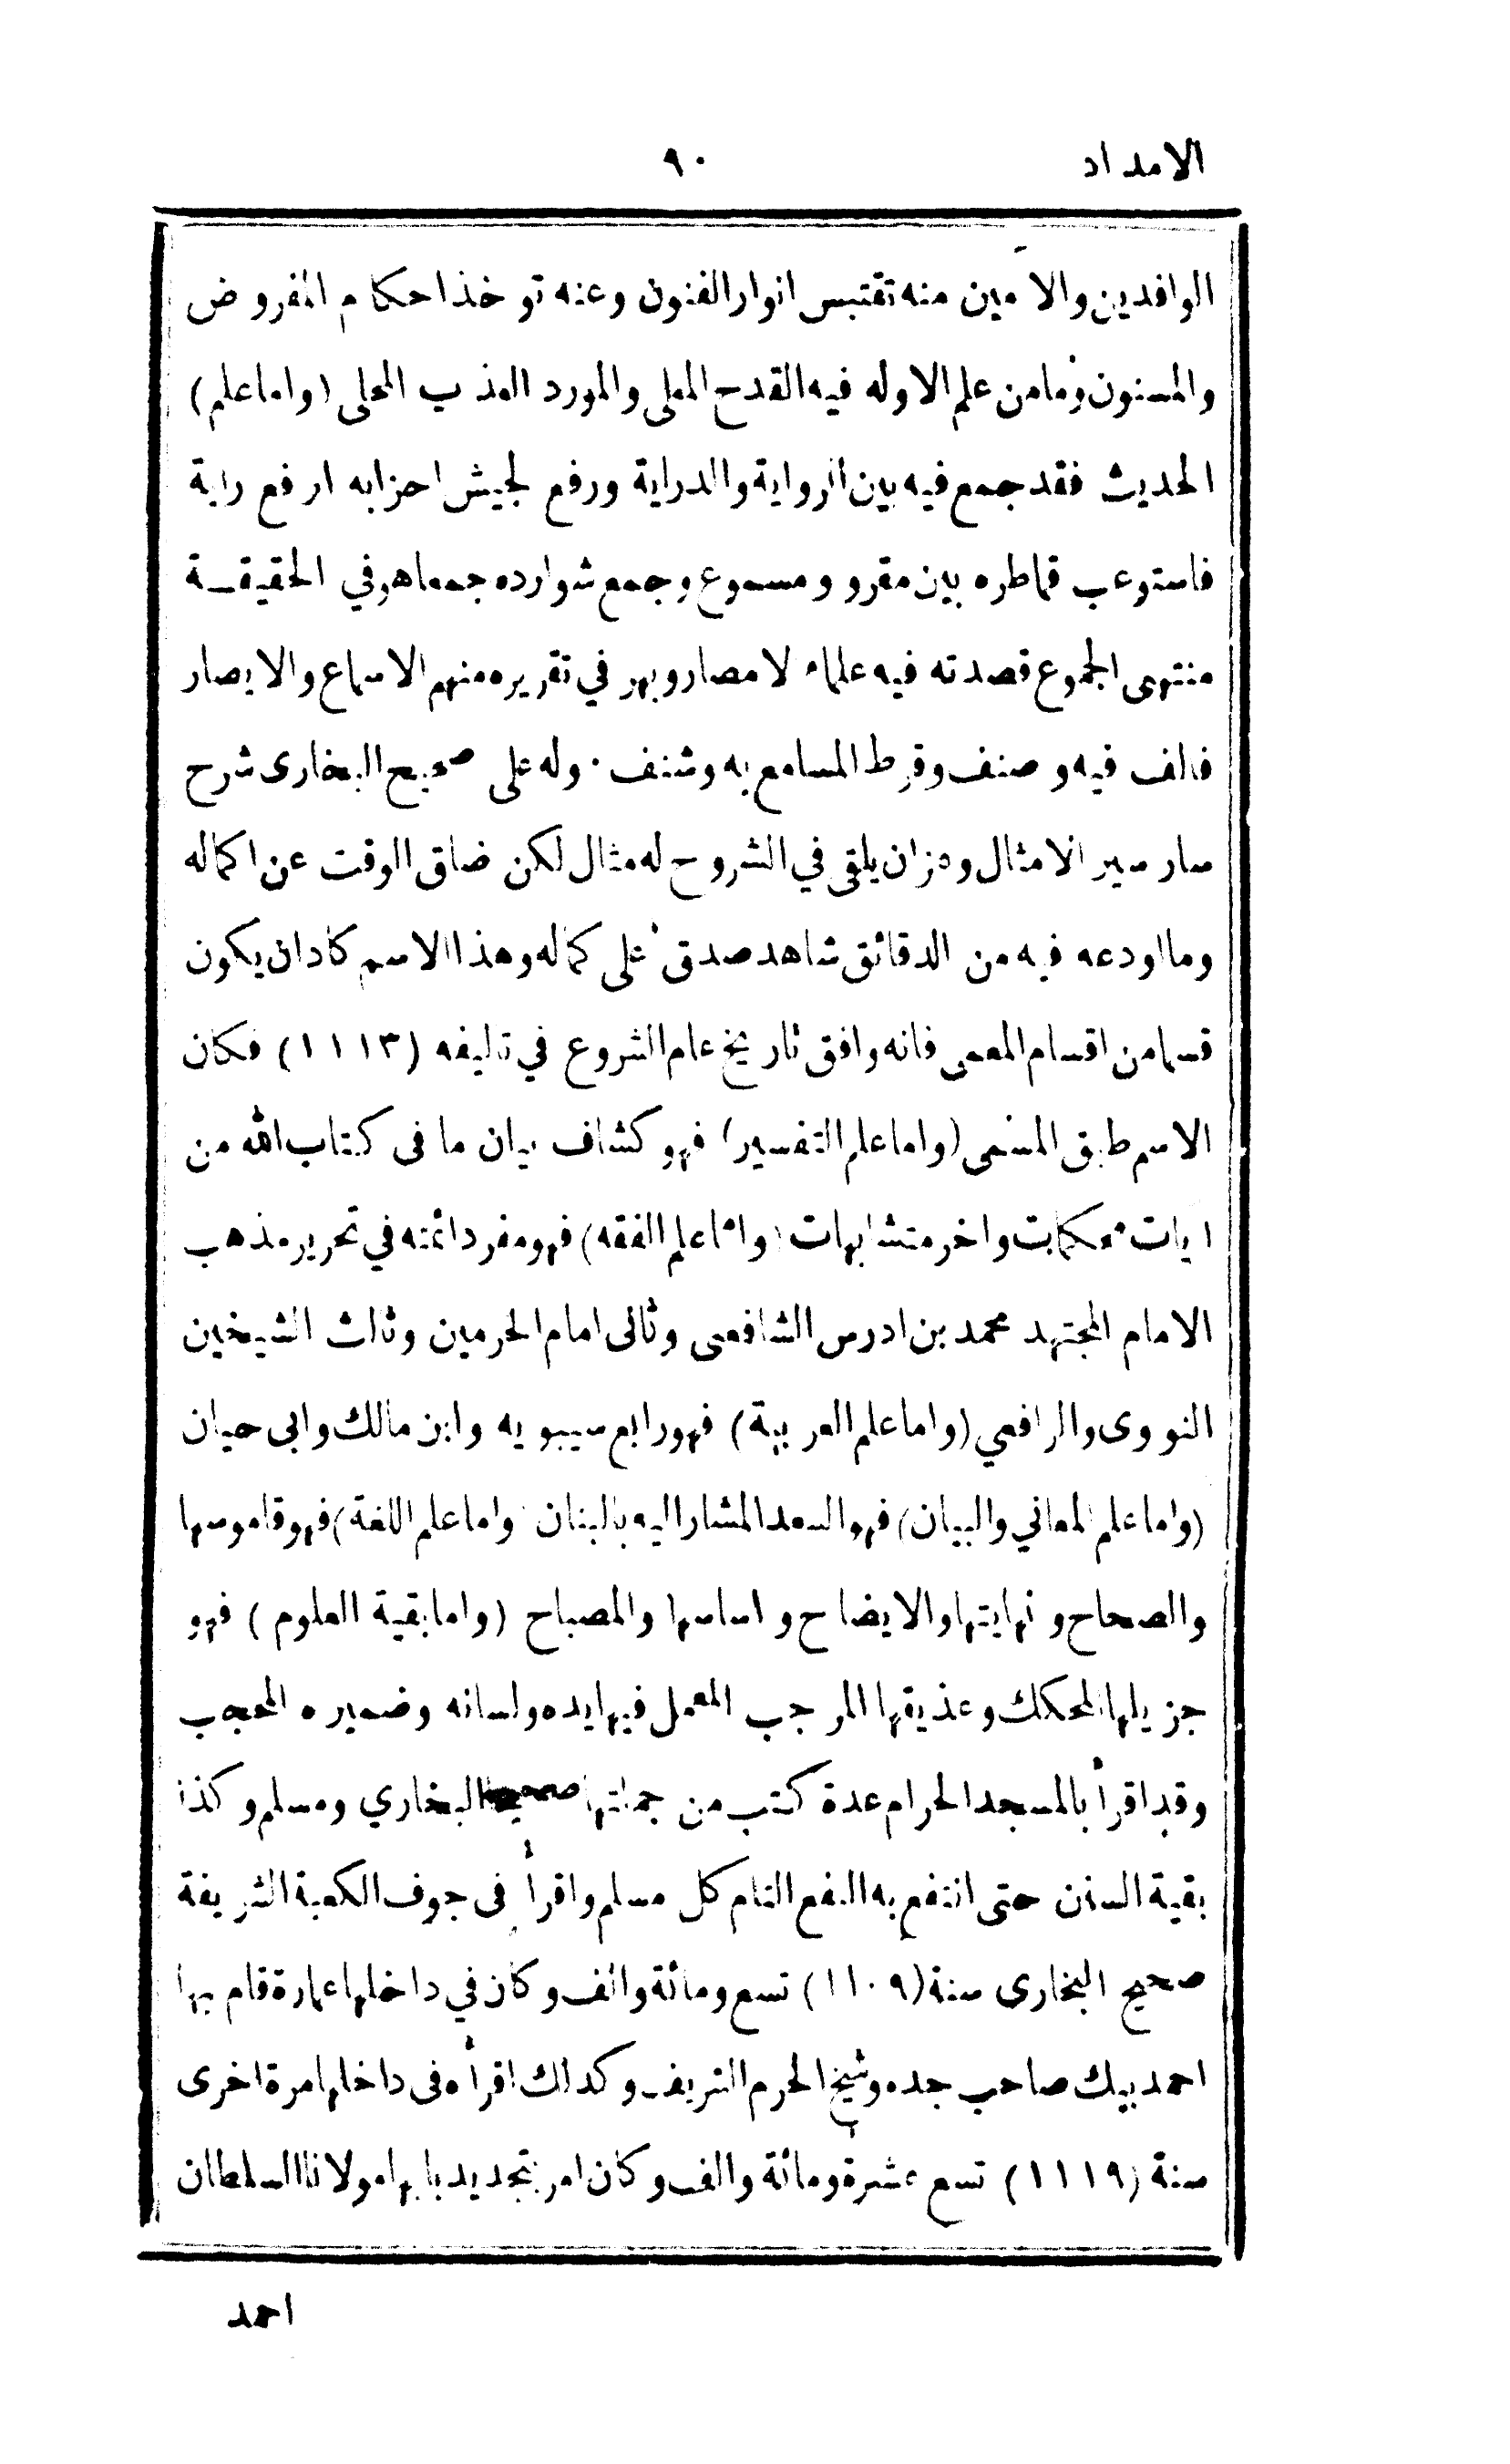 الامداد
٩٠
الوافدين والآمين منه تقتبس انوار الفنون وعنه توخذ احكام المفروض
والمسنون وما من علم الا وله فيه القدح المعلى والمورد العذب المحلى (واما علم)
الحديث فقد جمع فيه بين الرواية والدراية ورفع لجيش احزابه ارفع راية
فاستوعب قماطره بين مقرو ومسموع وجمع شوارده جمعا هو في الحقيقة
منتهى الجموع قصدته فيه علماء لامصار وبهر في تقريره منهم الاسماع والابصار
فالف فيه وصنف وقرط المسامع به وشنف . وله على صحيح البخارى شرح
سار سير الامثال وعزان يلقى في الشروح له مثال لكن ضاق الوقت عن اكماله
وما اودعه فيه من الدقائق شاهد صدق على كماله وهذا الاسم كادان يكون
قسما من اقسام المعمى فانه وافق تاريخ عام الشروع في تاليفه (١١١٣) فكان
الاسم طبق المسمى (واما علم التفسير) فهو كشاف بيان ما فى كتاب الله من
ايات محكمات واخر متشابهات (واما علم الفقه) فهو مفرد ائمته في تحرير مذهب
الامام المجتهد محمد بن ادرس الشافعى وثانى امام الحرمين وثالث الشيخين
النووى والرافعي (واما علم العربية) فهو رابع سيبويه وابن مالك وابى حيان
(واما علم المعاني والبيان) فهو السعد المشار اليه بالبنان (واما علم اللغة) فهو قاموسها
والصحاح ونهايتها والايضاح واساسها والمصباح (واما بقية العلوم) فهو
جزيلها المحكك وعذيقها المرجب المعمل فيها يده ولسانه وضميره المحجب
وقد اقرأ بالمسجد الحرام عدة كتب من جملتها البخاري ومسلم وكذا
بقية السنن حتى انتفع به النفع التام كل مسلم واقرأ فى جوف الكعبة الشريفة
صحيح البخارى سنة (١١٠٩) تسع ومائة والف وكان في داخلها عمارة قام بها
احمد بيك صاحب جده وشيخ الحرم الشريف وكذلك اقرأه فى داخلها مرة اخرى
سنة (١١١٩) تسع عشرة ومائة والف وكان امر بتجديد بابها مولانا السلطان
احمد